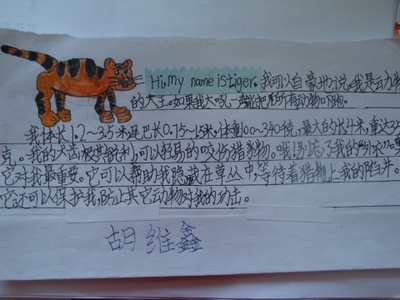 Hi,my name is tiger。我可以自豪地说,我是动物
的大王。如果我大吼一声,能把所有动物吓跑。
我体长1.2～3.5米,尾巴长0.75～1.5米,体重100～340
克。我的犬齿极其锐利,可以轻易的咬伤猎物。
它对我最重要。它可以帮助我隐藏在草丛中,等待着猎物上我的陷井。
它还可以保护我,防止其它动物对我的攻击。
胡维鑫